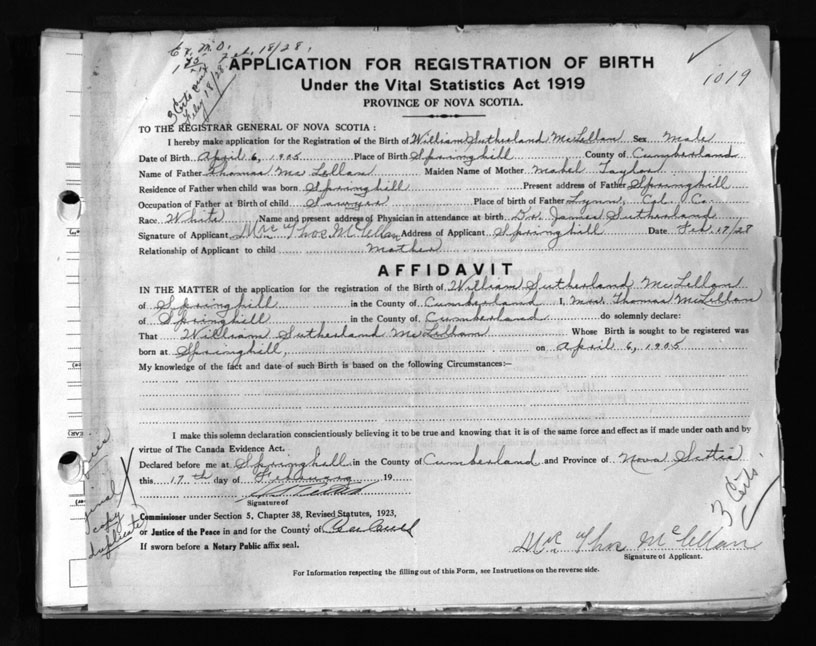 Feb. 18/28.
3 Certs
Feby 18/28
1019
APPLICATION FOR REGISTRATION OF BIRTH
Under the Vital Statistics Act 1919
PROVINCE OF NOVA SCOTIA.
TO THE REGISTRAR GENERAL OF NOVA SCOTIA :
I hereby make application for the Registration of the Birth of William Sutherland McLellan Sex Male
Date of Birth April 6, 1905 Place of Birth Springhill County of Cumberland
Name of Father Thomas McLellan Maiden Name of Mother Mabel Taylor
Residence of Father when child was born Springhill Present address of Father Springhill
Occupation of Father at Birth of child Sawyer Place of birth of Father Lynn, Col. Co.
Race White Name and present address of Physician in attendance at birth Dr. James Sutherland
Signature of Applicant Mrs Thos McLellan Address of Applicant Springhill Date Feb 17/28
Relationship of Applicant to child Mother
AFFIDAVIT
IN THE MATTER of the application for the registration of the Birth of William Sutherland McLellan
of Springhill in the County of Cumberland I, Mrs. Thomas McLellan
of Springhill in the County of Cumberland do solemnly declare:
That William Sutherland McLellan Whose Birth is sought to be registered was
born at Springhill, on April 6, 1905
My knowledge of the fact and date of such Birth is based on the following Circumstances:—
I make this solemn declaration conscientiously believing it to be true and knowing that it is of the same force and effect as if made under oath and by
virtue of The Canada Evidence Act.
Declared before me at Springhill in the County of Cumberland and Province of Nova Scotia
this 17th day of February 19
Signature of
Commissioner under Section 5, Chapter 38, Revised Statutes, 1923,
or Justice of the Peace in and for the County of
If sworn before a Notary Public affix seal.
copy
duplicate
3 Certs.
Mrs Thos McLellan
Signature of Applicant.
For Information respecting the filling out of this Form, see Instructions on the reverse side.